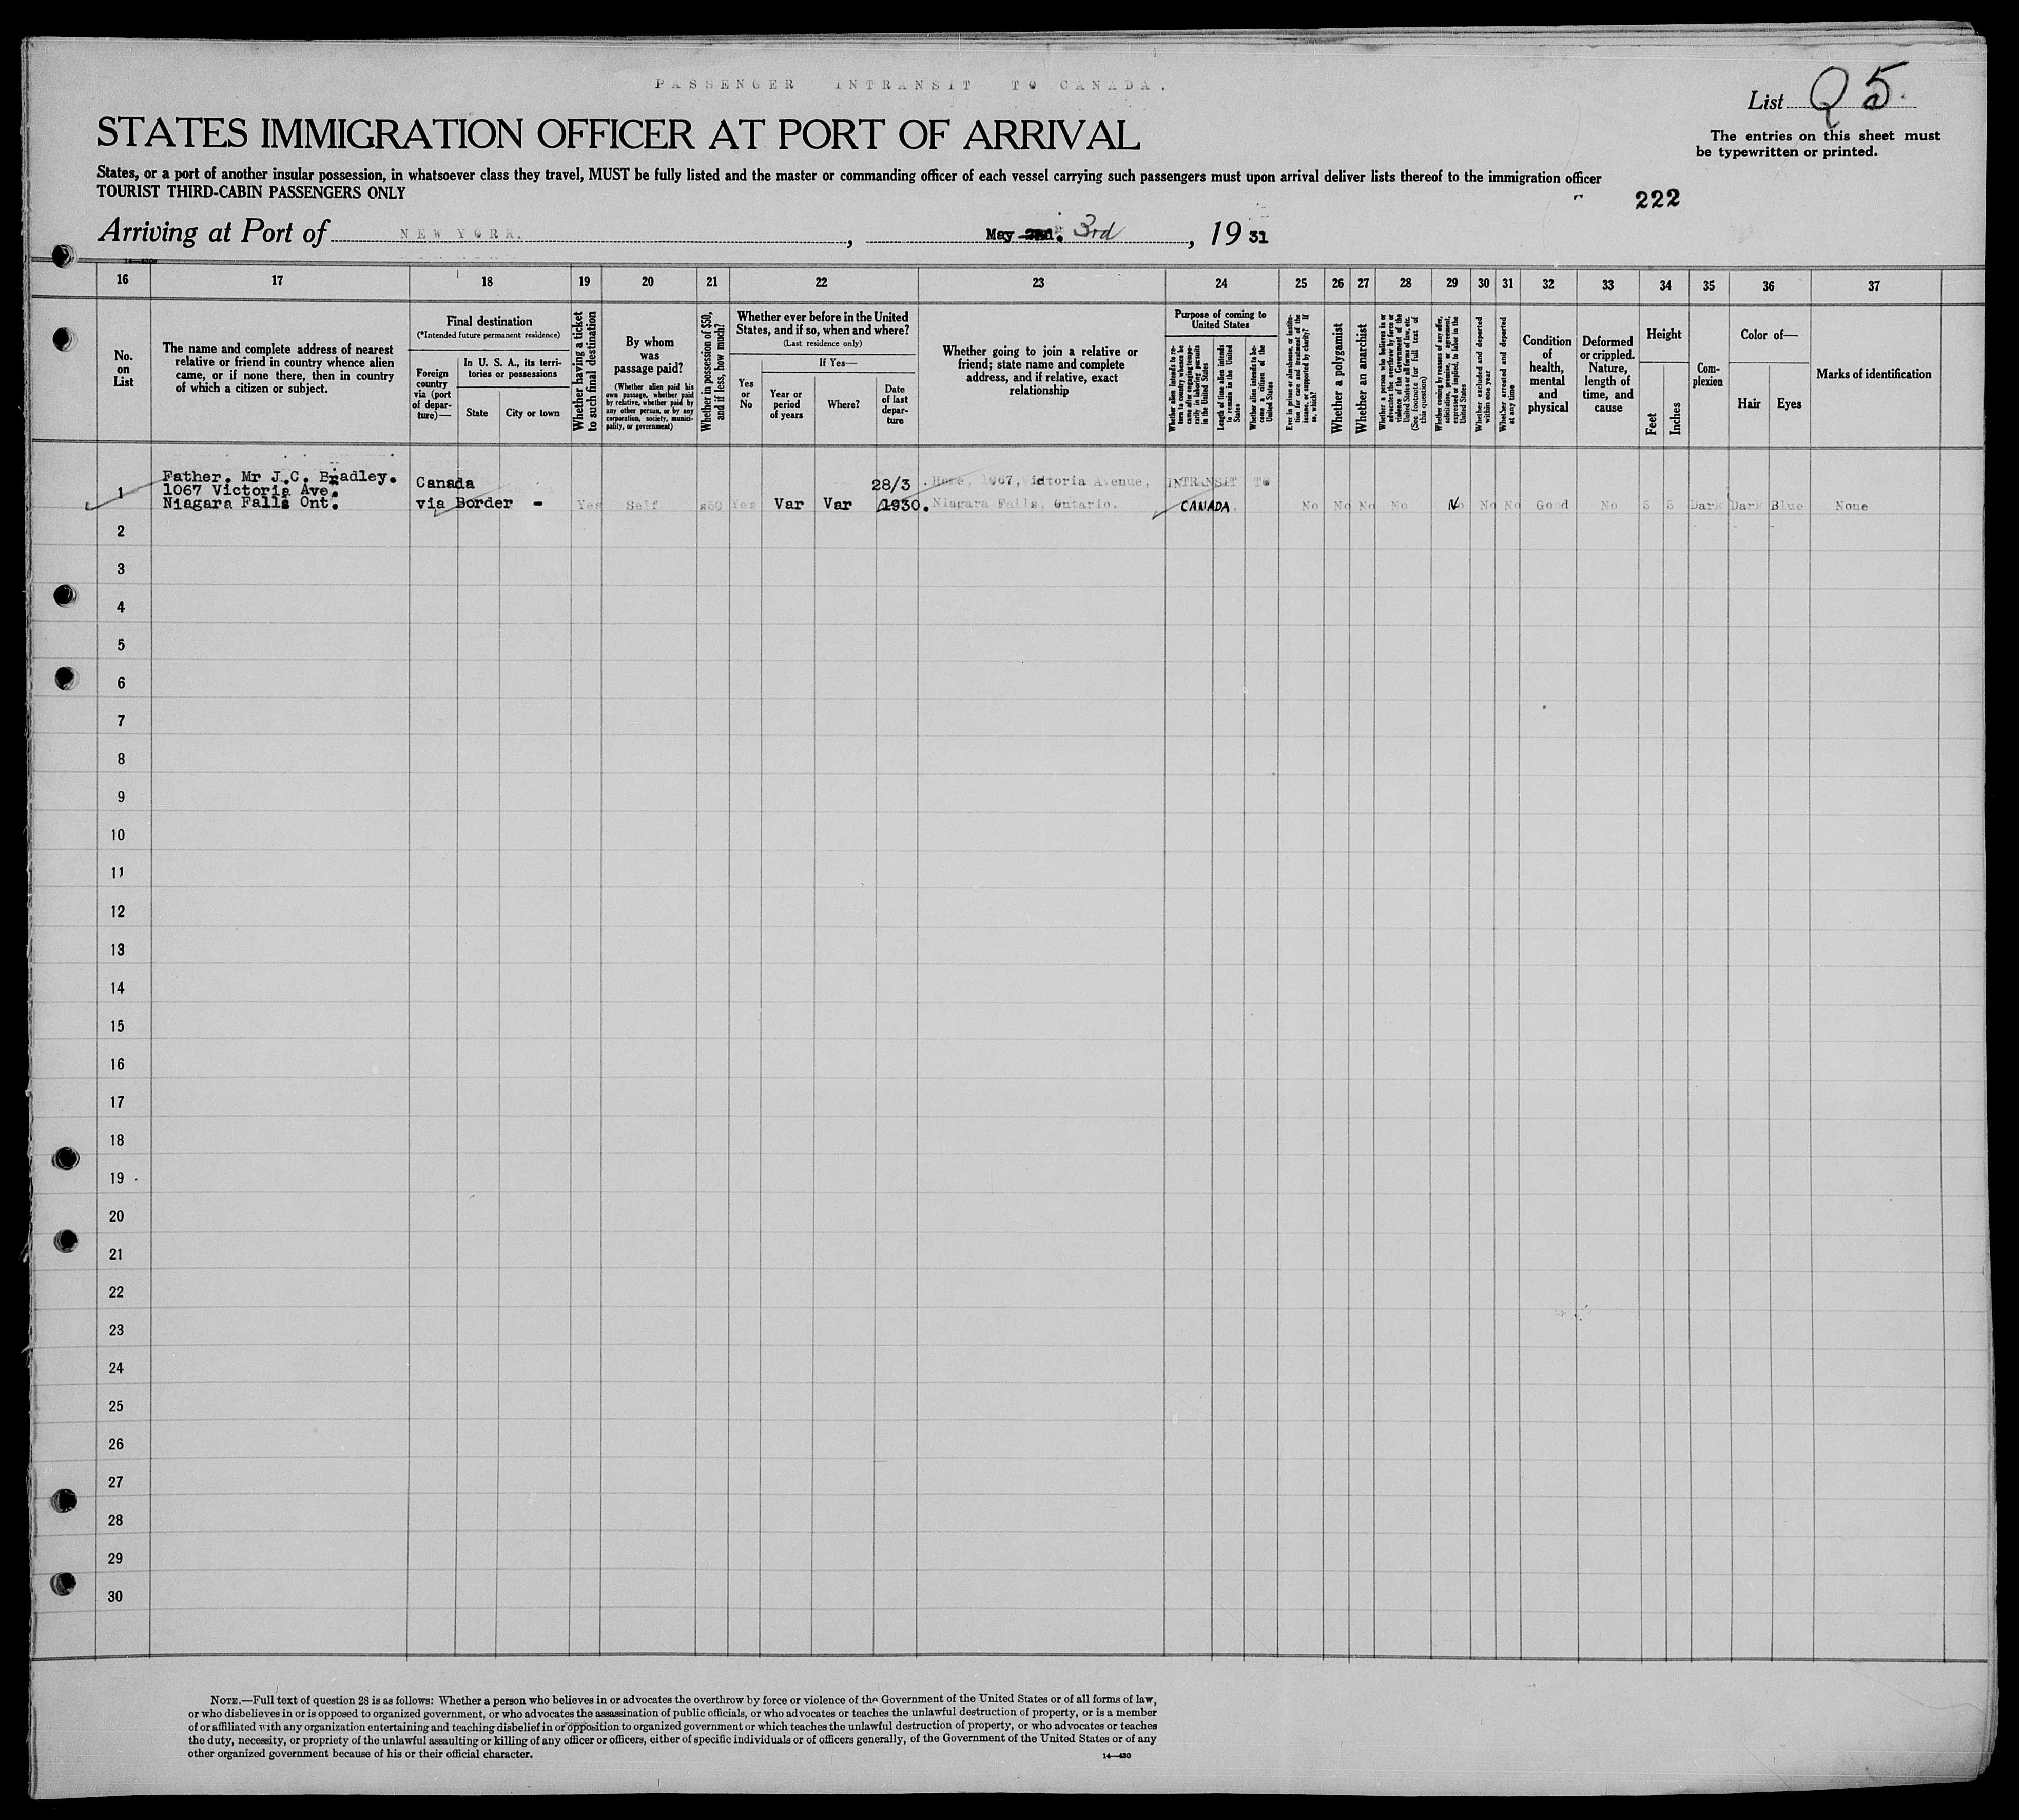 PASSENGER INTRANSIT TO CANADA.
List Q 5.
STATES IMMIGRATION OFFICER AT PORT OF ARRIVAL
The entries on this sheet must
be typewritten or printed.
States, or a port of another insular possession, in whatsoever class they travel, MUST be fully listed and the master or commanding officer of each vessel carrying such passengers must upon arrival deliver lists thereof to the immigration officer
TOURIST THIRD-CABIN PASSENGERS ONLY
222
Arriving at Port of NEW YORK. , May 3rd , 19 31
16 17 18 19 20 21 22 23 24 25 26 27 28 29 30 31 32 33 34 35 36 37
No.
on
List
The name and complete address of nearest
relative or friend in country whence alien
came, or if none there, then in country
of which a citizen or subject.
Final destination
(*Intended future permanent residence)
Foreign
country
via (port
of depar-
ture)—
In U. S. A., its terri-
tories or possessions
State
City or town
Whether having a ticket
to such final destination
By whom
was
passage paid?
(Whether alien paid his
own passage, whether paid
by relative, whether paid by
any other person, or by any
corporation, society, munici-
pality, or government)
Whether in possession of $50,
and if less, how much?
Whether ever before in the United
States, and if so, when and where?
(Last residence only)
Yes
or
No
If Yes—
Year or
period
of years
Where?
Date
of last
depar-
ture
Whether going to join a relative or
friend; state name and complete
address, and if relative, exact
relationship
Purpose of coming to
United States
Whether alien intends to re-
turn to country whence he
came after engaging tempo-
rarily in laboring pursuits
in the United States
Length of time alien intends
to remain in the United
States
Whether alien intends to be-
come a citizen of the
United States
Ever in prison or almshouse, or institu-
tion for care and treatment of the
insane, or supported by charity? If
so, which?
Whether a polygamist
Whether an anarchist
Whether a person who believes in or
advocates the overthrow by force or
violence of the Government of the
United States or all forms of law, etc.
(See footnote for full text of
this question)
Whether coming by reasons of any offer,
solicitation, promise, or agreement,
expressed or implied, to labor in the
United States
Whether excluded and deported
within one year
Whether arrested and deported
at any time
Condition
of
health,
mental
and
physical
Deformed
or crippled.
Nature,
length of
time, and
cause
Height
Feet
Inches
Com-
plexion
Color of—
Hair
Eyes
Marks of identification
Father. Mr J.C. Bradley.
1067 Victoria Ave.
Niagara Falls Ont.
Canada
via Border -
1 Yes Self $50 Yes Var Var 28/3
1930.
Home, 1067, Victoria Avenue,
Niagara Falls, Ontario.
INTRANSIT TO
CANADA.
No No No No No No No Good No 5 5 Dark Dark Blue None
2
3
4
5
6
7
8
9
10
11
12
13
14
15
16
17
18
19
20
21
22
23
24
25
26
27
28
29
30
NOTE.—Full text of question 28 is as follows: Whether a person who believes in or advocates the overthrow by force or violence of the Government of the United States or of all forms of law,
or who disbelieves in or is opposed to organized government, or who advocates the assassination of public officials, or who advocates or teaches the unlawful destruction of property, or is a member
of or affiliated with any organization entertaining and teaching disbelief in or opposition to organized government or which teaches the unlawful destruction of property, or who advocates or teaches
the duty, necessity, or propriety of the unlawful assaulting or killing of any officer or officers, either of specific individuals or of officers generally, of the Government of the United States or of any
other organized government because of his or their official character.
14—430